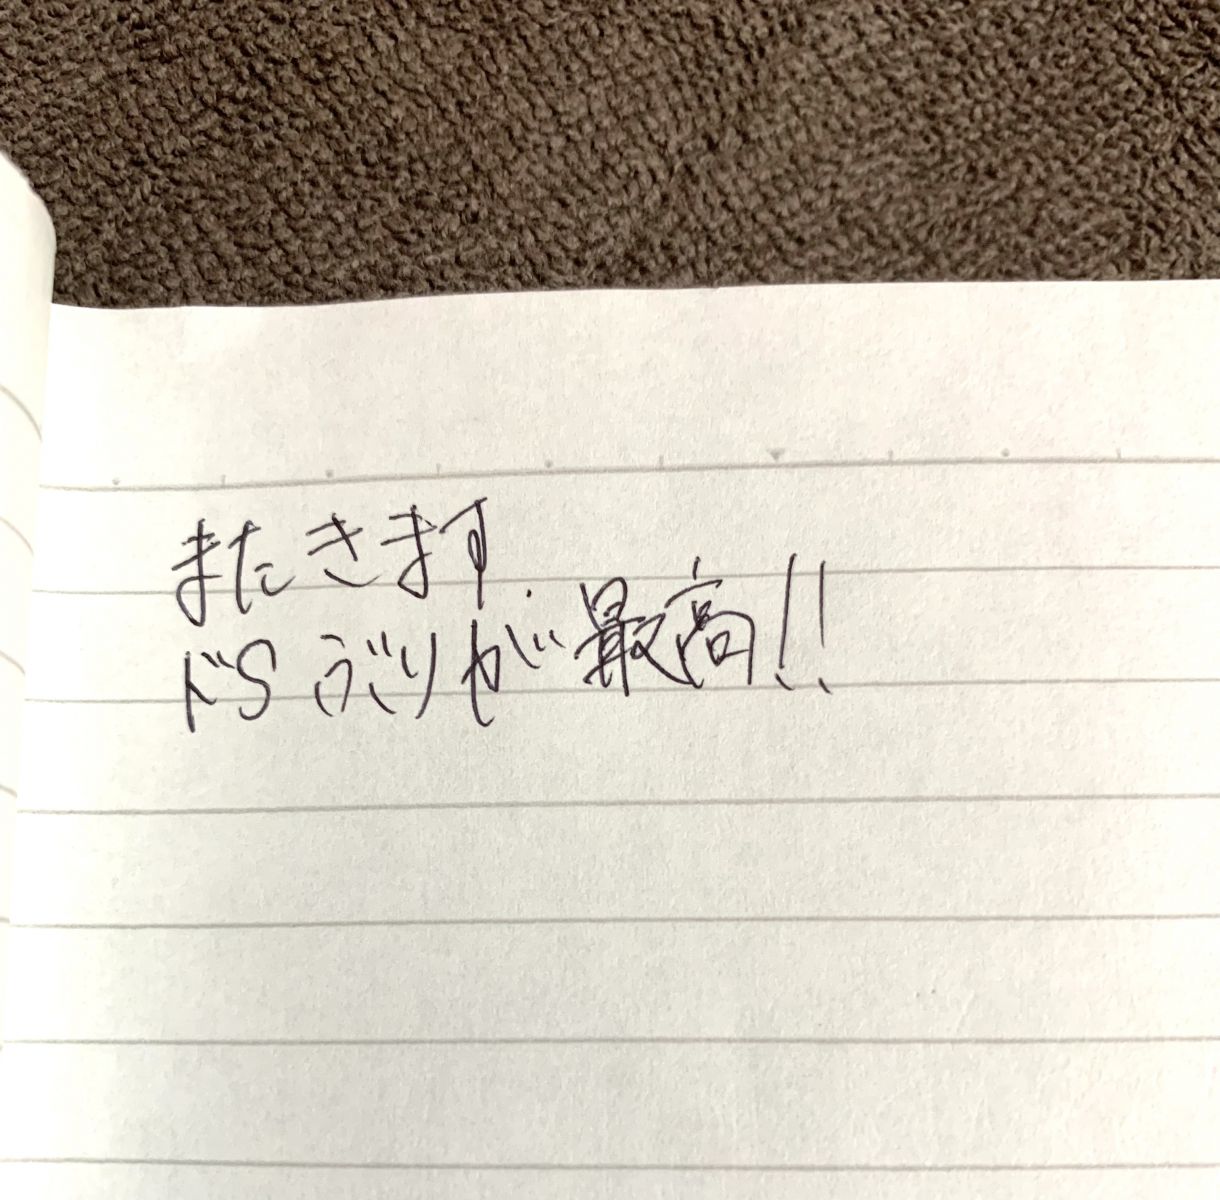 またきます.
ドSぶりが最高!!